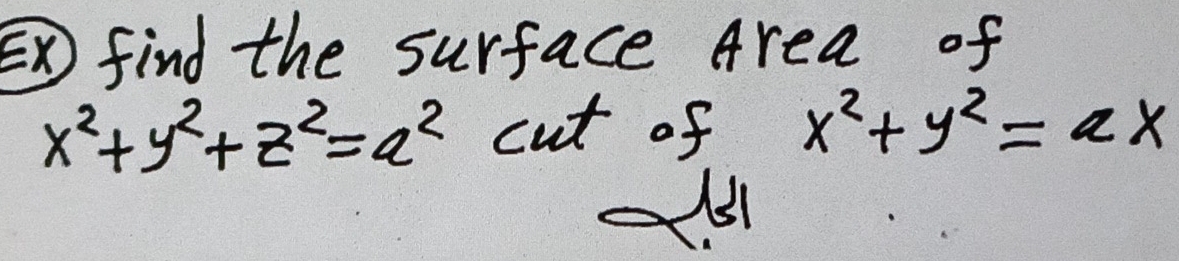 Ex) find the surface Area of
x²+y²+z²=a² cut of x²+y²=ax